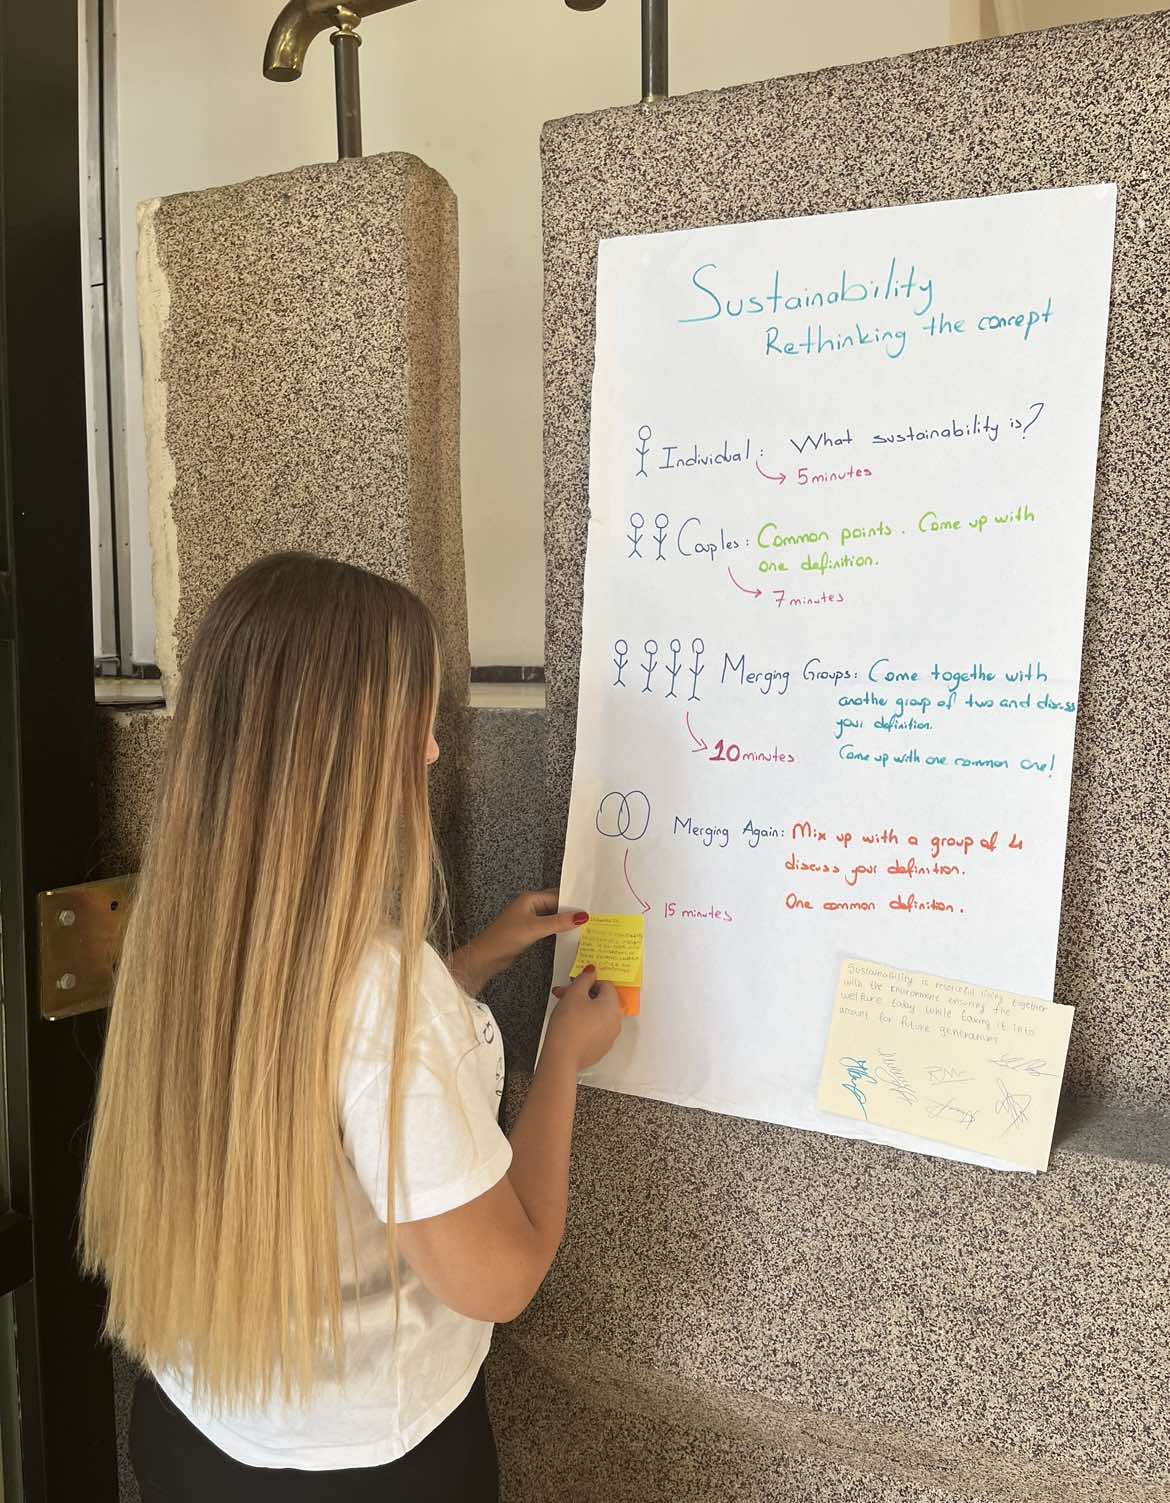 Sustainability
Rethinking the concept
Individual: What sustainability is?
5 minutes
Couples: Common points. Come up with
one definition.
7 minutes
Merging Groups: Come together with
another group of two and discuss
your definition.
Come up with one common one!
10 minutes
Merging Again: Mix up with a group of 4
discuss your definition.
One common definition.
15 minutes
Sustainability is resourceful living together
with the environment ensuring the
welfare today while taking it into
account for future generations